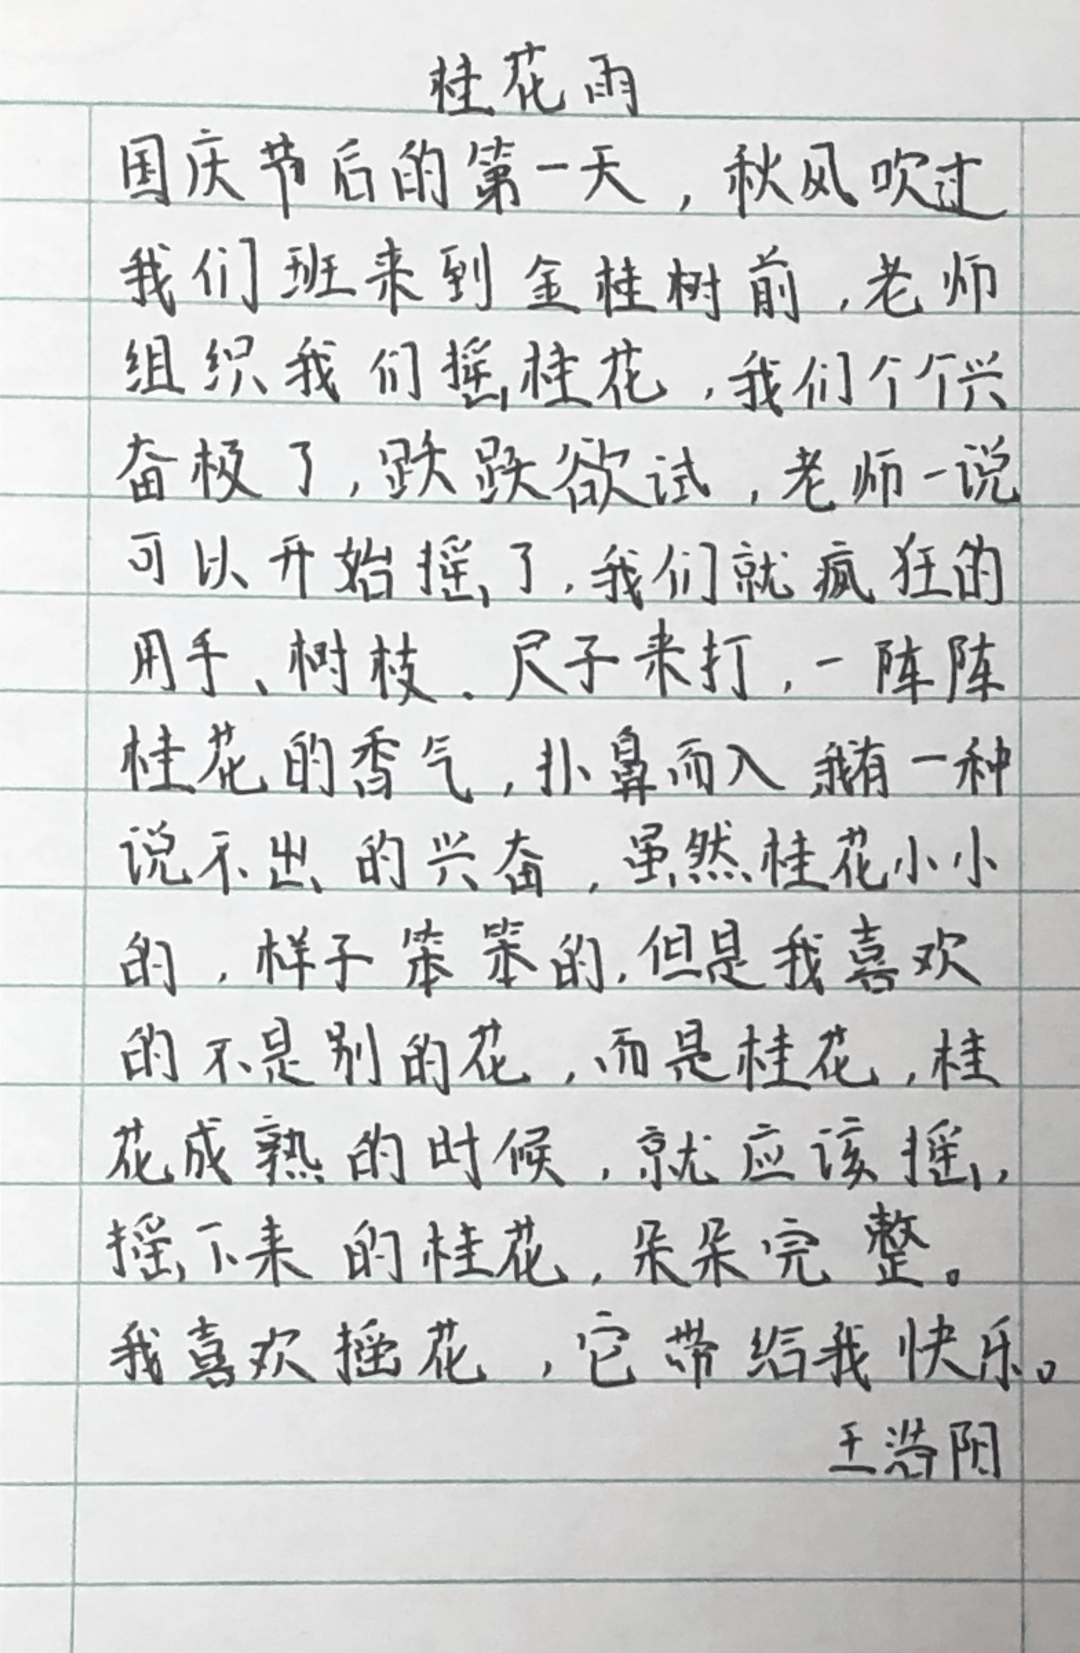 桂花雨
国庆节后的第一天，秋风吹过
我们班来到金桂树前，老师
组织我们摇桂花，我们个个兴
奋极了，跃跃欲试，老师一说
可以开始摇了，我们就疯狂的
用手、树枝、尺子来打，一阵阵
桂花的香气，扑鼻而入 我有一种
说不出的兴奋，虽然桂花小小
的，样子笨笨的，但是我喜欢
的不是别的花，而是桂花，桂
花成熟的时候，就应该摇，
摇下来的桂花，朵朵完整。
我喜欢摇花，它带给我快乐。
王浩阳